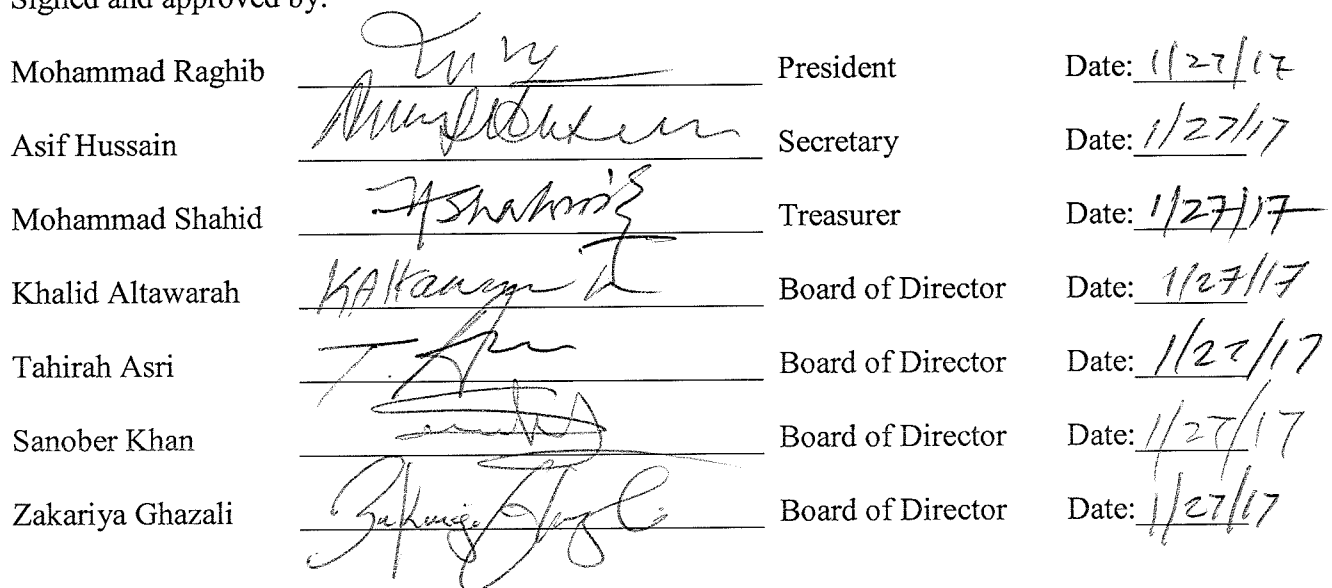 Signed and approved by:
Mohammad Raghib President Date: 1/27/17
Asif Hussain Secretary Date: 1/27/17
Mohammad Shahid Treasurer Date: 1/27/17
Khalid Altawarah Board of Director Date: 1/27/17
Tahirah Asri T. Board of Director Date: 1/27/17
Sanober Khan Board of Director Date: 1/27/17
Zakariya Ghazali Board of Director Date: 1/27/17